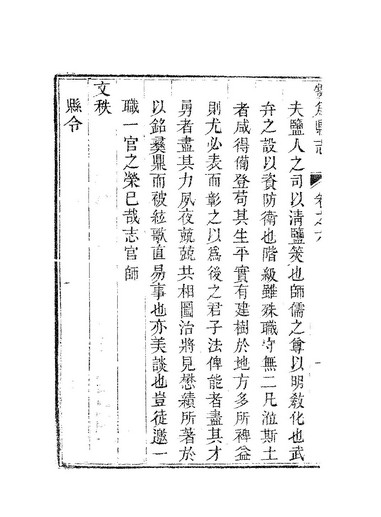 縣志
卷之六
夫鹽人之司以清鹽筴也師儒之尊以明敎化也武
弁之設以資防衛也階級雖殊職守無二凡涖斯土
者咸得備登苟其生平實有建樹於地方多所裨益
則尤必表而彰之以爲後之君子法俾能者盡其才
勇者盡其力夙夜兢兢共相圖治將見懋績所著於
以銘彝鼎而被絃歌直易事也亦美談也豈徒邀一
職一官之榮已哉志官師
文秩
縣令